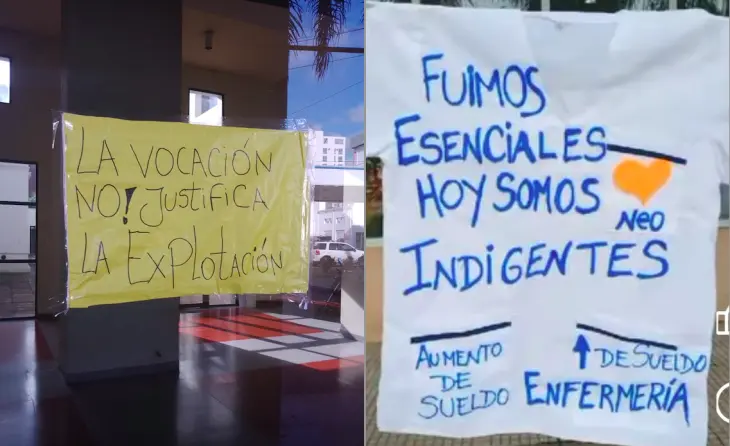 LA VOCACIÓN
NO! JUSTIFICA
LA EXPLOTACIÓN
FUIMOS
ESENCIALES
HOY SOMOS
NEO
INDIGENTES
AUMENTO
DE
SUELDO
↑ DE SUELDO
ENFERMERÍA